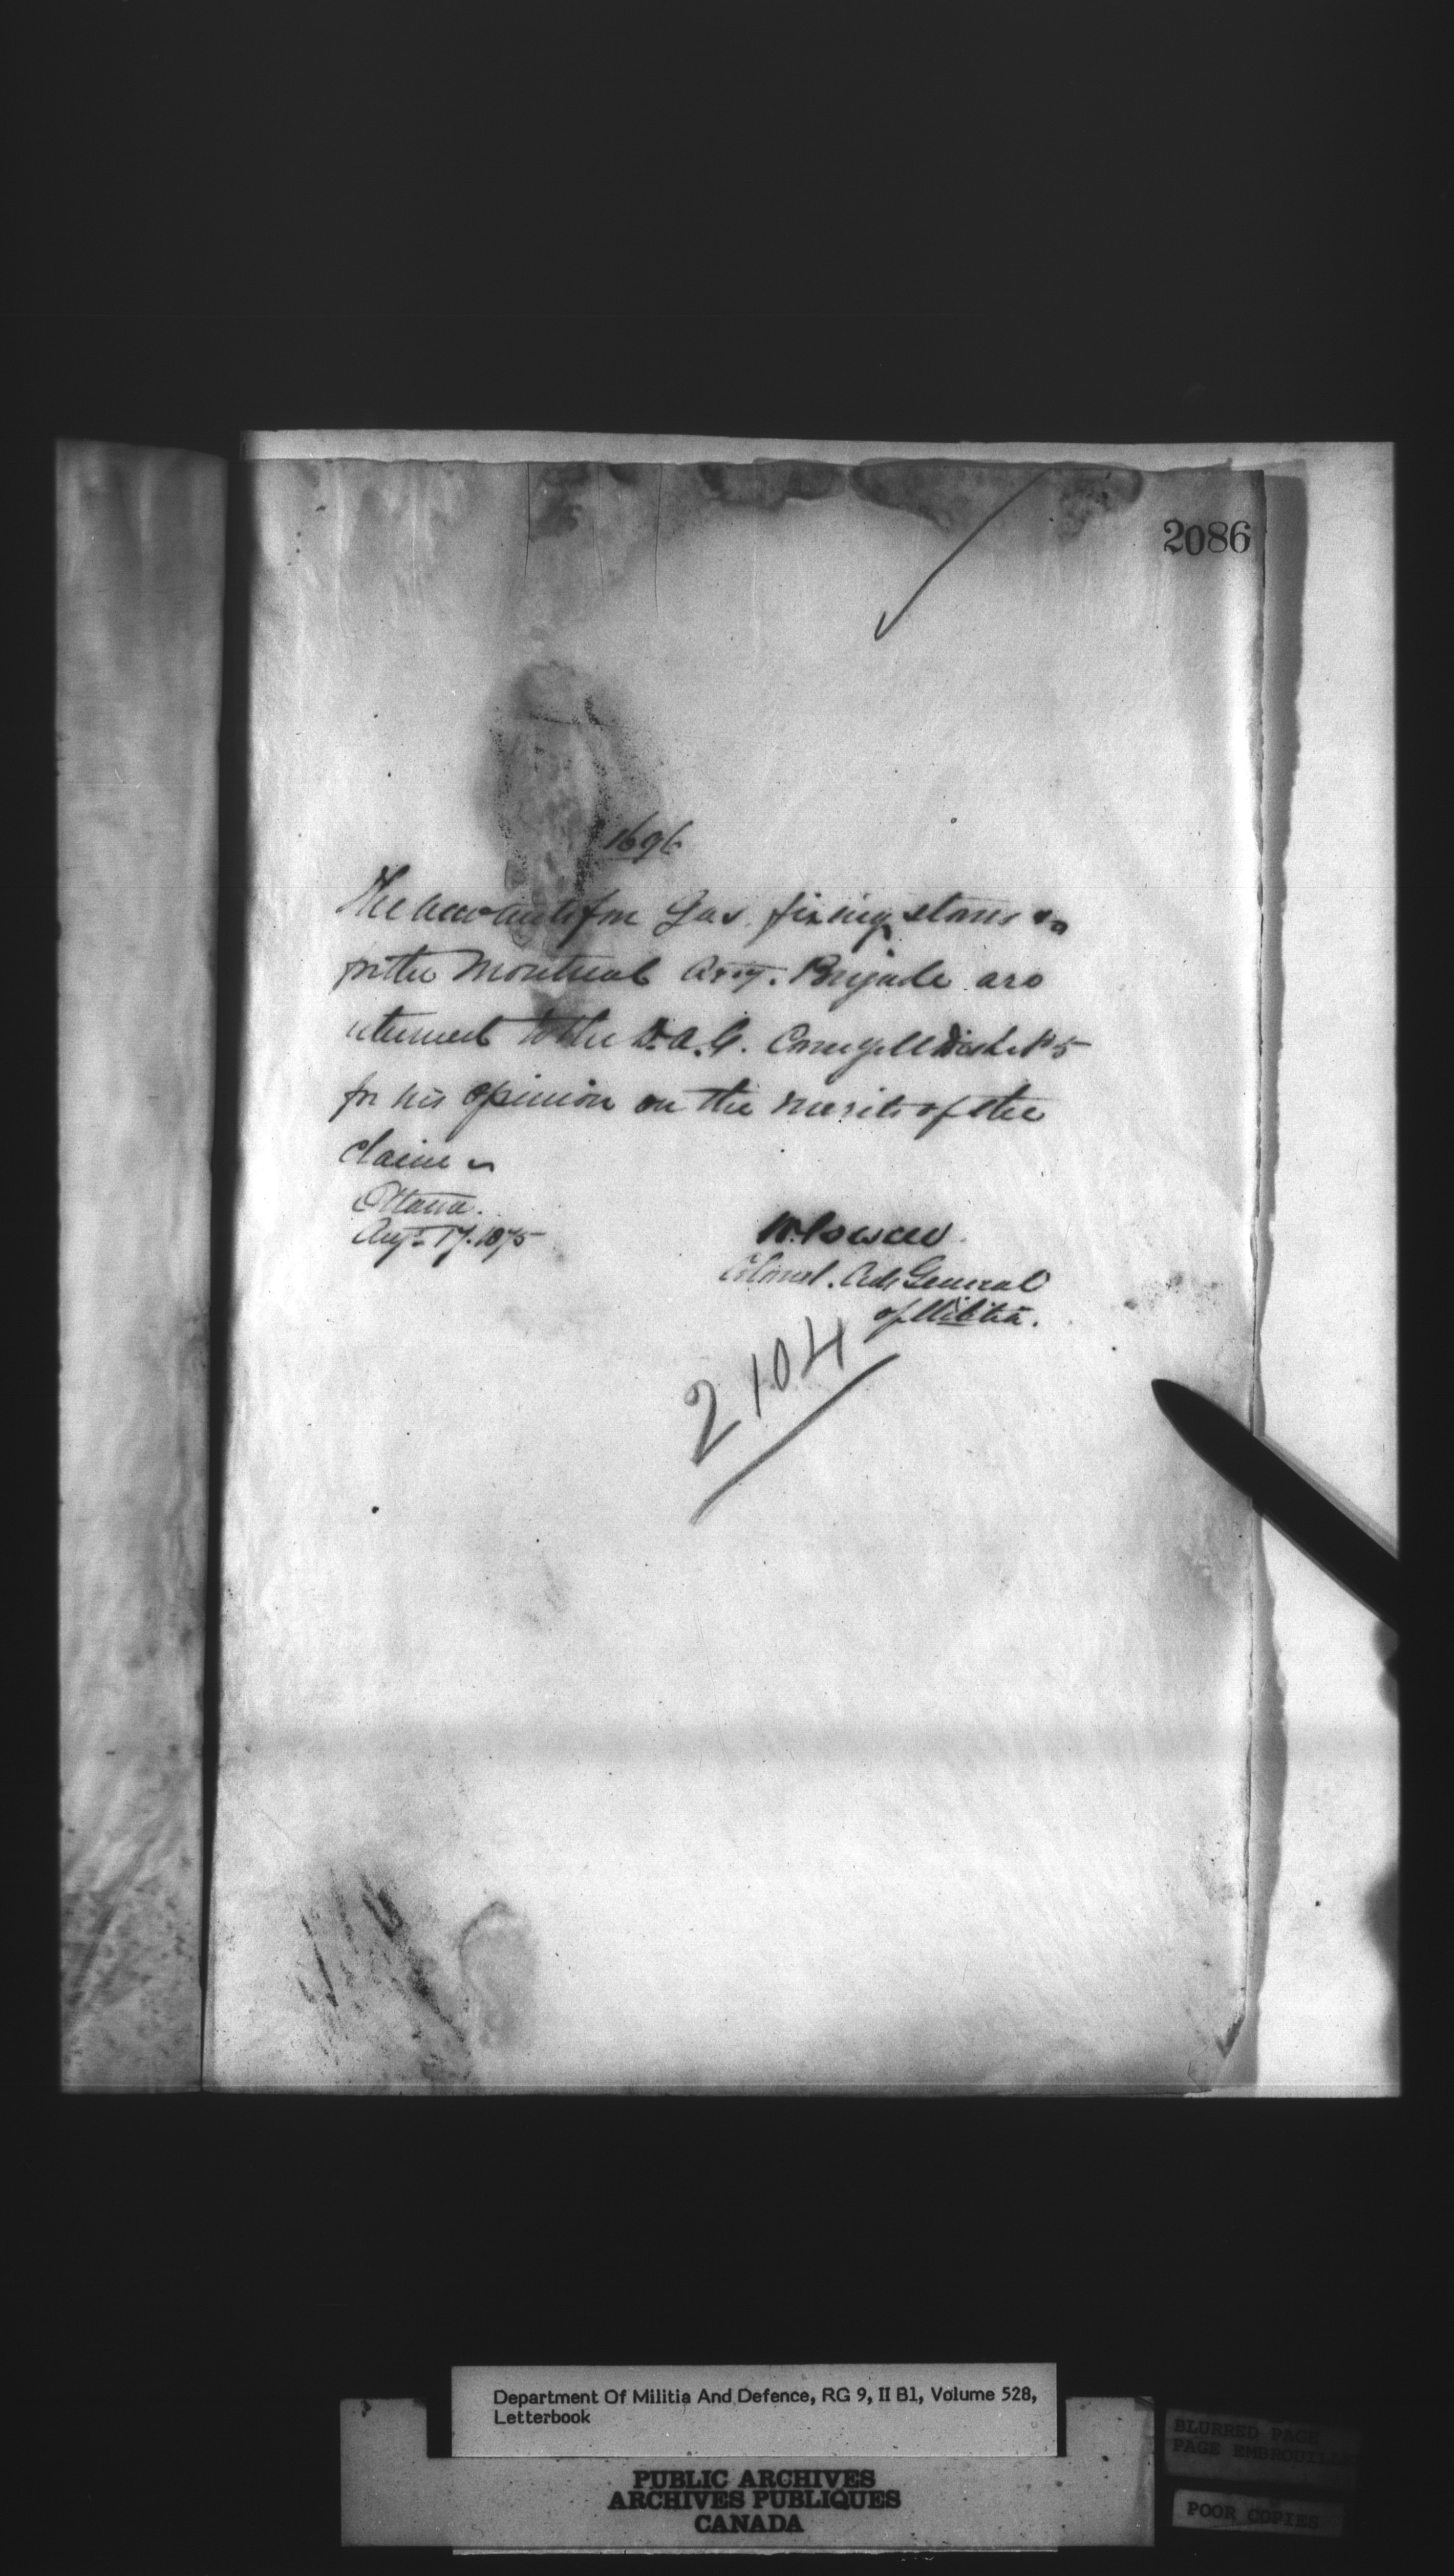 2086
1696
The accounts for Gas, fixing stoves &c
for the Montreal Arty. Brigade are
returned to the D.A.G. Comg Mil Dist No 5
for his opinion on the merits of the
claim
Ottawa.
Augt 17. 1875
W. Powell
Colonel. Adt General
of Militia.
2104
Department Of Militia And Defence, RG 9, II B1, Volume 528,
Letterbook
PUBLIC ARCHIVES
ARCHIVES PUBLIQUES
CANADA
BLURRED PAGE
PAGE EMBROUILLÉE
POOR COPIES